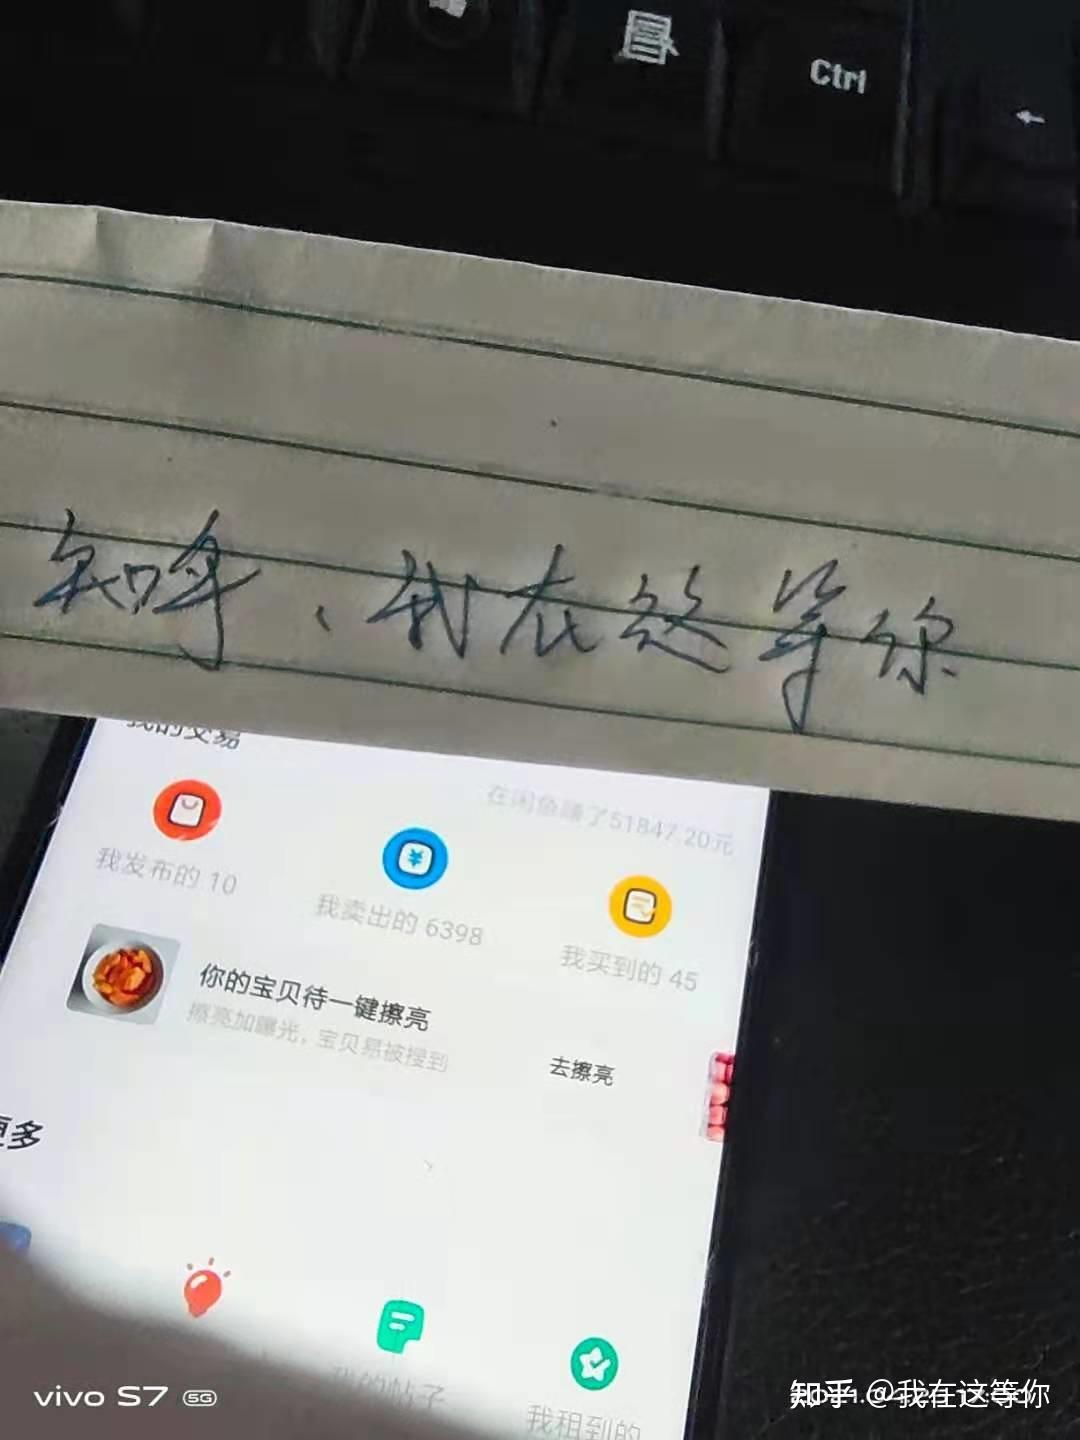 Ctrl
知乎、我在这等你
我的交易
在闲鱼赚了51847.20元
我发布的 10
我卖出的 6398
我买到的 45
你的宝贝待一键擦亮
擦亮加曝光，宝贝易被搜到
去擦亮
更多
我的帖子
我租到的
vivo S7 5G
知乎 @我在这等你